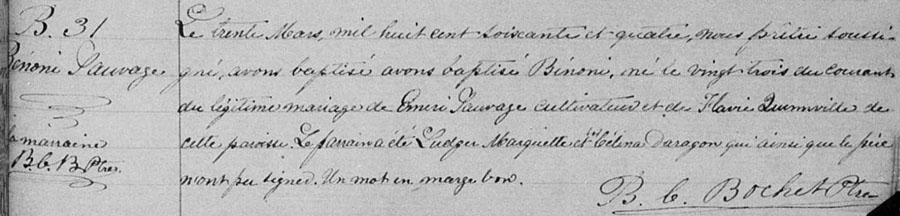 B. 31
Bénoni Sauvage
la marraine
B. C. B Ptre.
Le trente Mars, mil huit cent soixante et quatre, nous prêtre soussi-
gné, avons baptisé avons baptisé Bénoni, né le vingt trois du courant
du légitime mariage de Emeri Sauvage cultivateur et de Flavie
de
cette paroisse. Le parrain a été Ludger Marquette et Célina Daragon qui ainsi que le père
n'ont pu signer. Un mot en marge bon.
B. C. Bochet Ptre